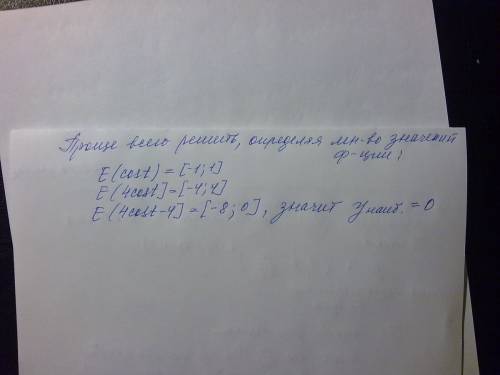 Проще всего решить, определяя мн-во значений
ф-ции:
E(cost) = [-1;1]
E(4cost] = [-4;4]
E(4cost-4] = [-8;0], значит Yнаиб. = 0